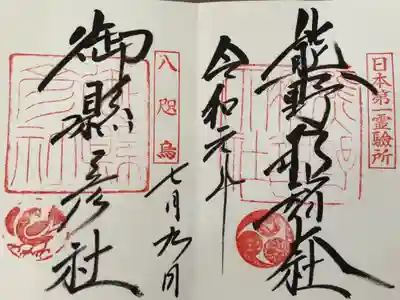 日本第一霊験所
熊野那智大社
令和元年
七月九日
八咫烏
御縣彦社